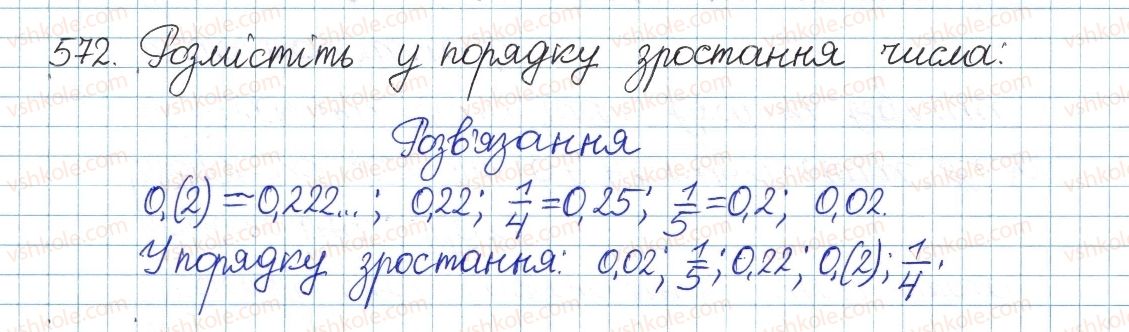 572. Розмістіть у порядку зростання числа:
Розв'язання
0,(2) = 0,222...; 0,22; 1/4 = 0,25; 1/5 = 0,2; 0,02.
У порядку зростання: 0,02; 1/5; 0,22; 0,(2); 1/4.